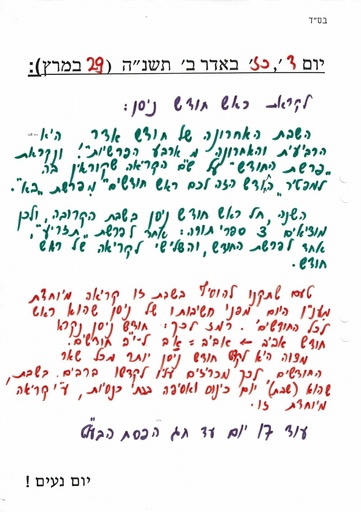 בס"ד
יום ד', כז' באדר ב' תשנ"ה (29 במרץ):
לקראת ראש חודש ניסן:
השבת האחרונה של חודש אדר היא
הרביעית והאחרונה מ"ארבע הפרשיות". ונקראת
"פרשת החודש" על שם הקריאה שקוראין בה
למפטיר "החודש הזה לכם ראש חודשים" מפרשת "בא".
השנה, חל ראש חודש ניסן בשבת הקרובה, ולכן
מוציאים 3 ספרי תורה: אחד לפרשת "תזריע",
אחד לפרשת החודש, והשלישי לקריאה של ראש
חודש.
טעם שתקנו להוסיף בשבת זו קריאה מיוחדת
מענין היום מפני חשיבותו של ניסן שהוא ראש
לכל החודשים. רמז לכך: חודש ניסן נקרא
חודש אביב ← אב י"ב = אב ל-י"ב חודשים.
מצוה היא לקדש חודש ניסן יותר מכל שאר
החודשים לכך מכריזים עליו לקדשו ברבים. בשבת,
שהוא (שבת) יום כינוס ואסיפה בבתי כנסיות, ע"י קריאה
מיוחדת זו.
עוד 17 יום עד חג הפסח הבעל"ט
יום נעים !